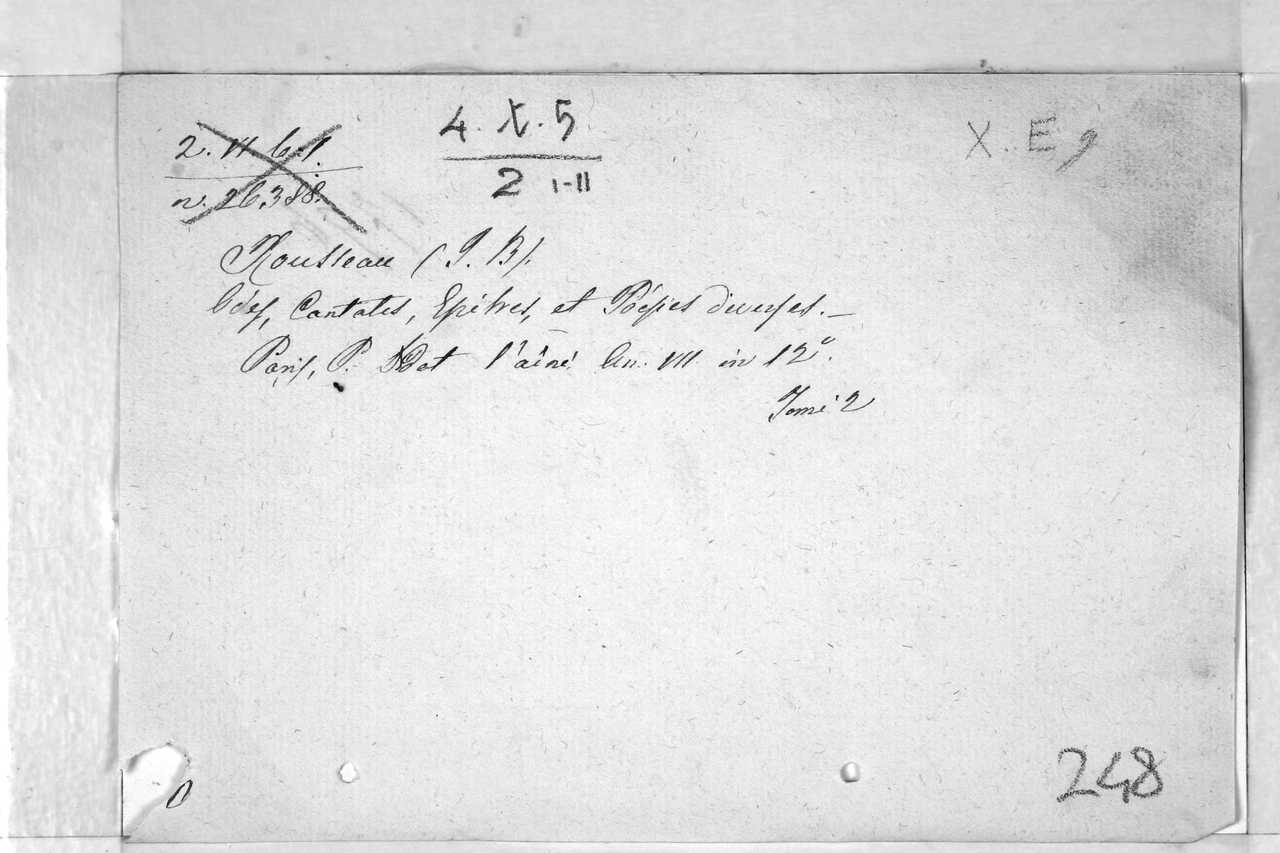 2. VI b. 1.
n. 26388.
4. X. 5
2 I-II
X. E 9
Rousseau (J. B).
Odes, Cantates, Epitres, et Poésies diverses. —
Paris, P. Didot l'aîné An. VII in 12°.
Tome 2
248